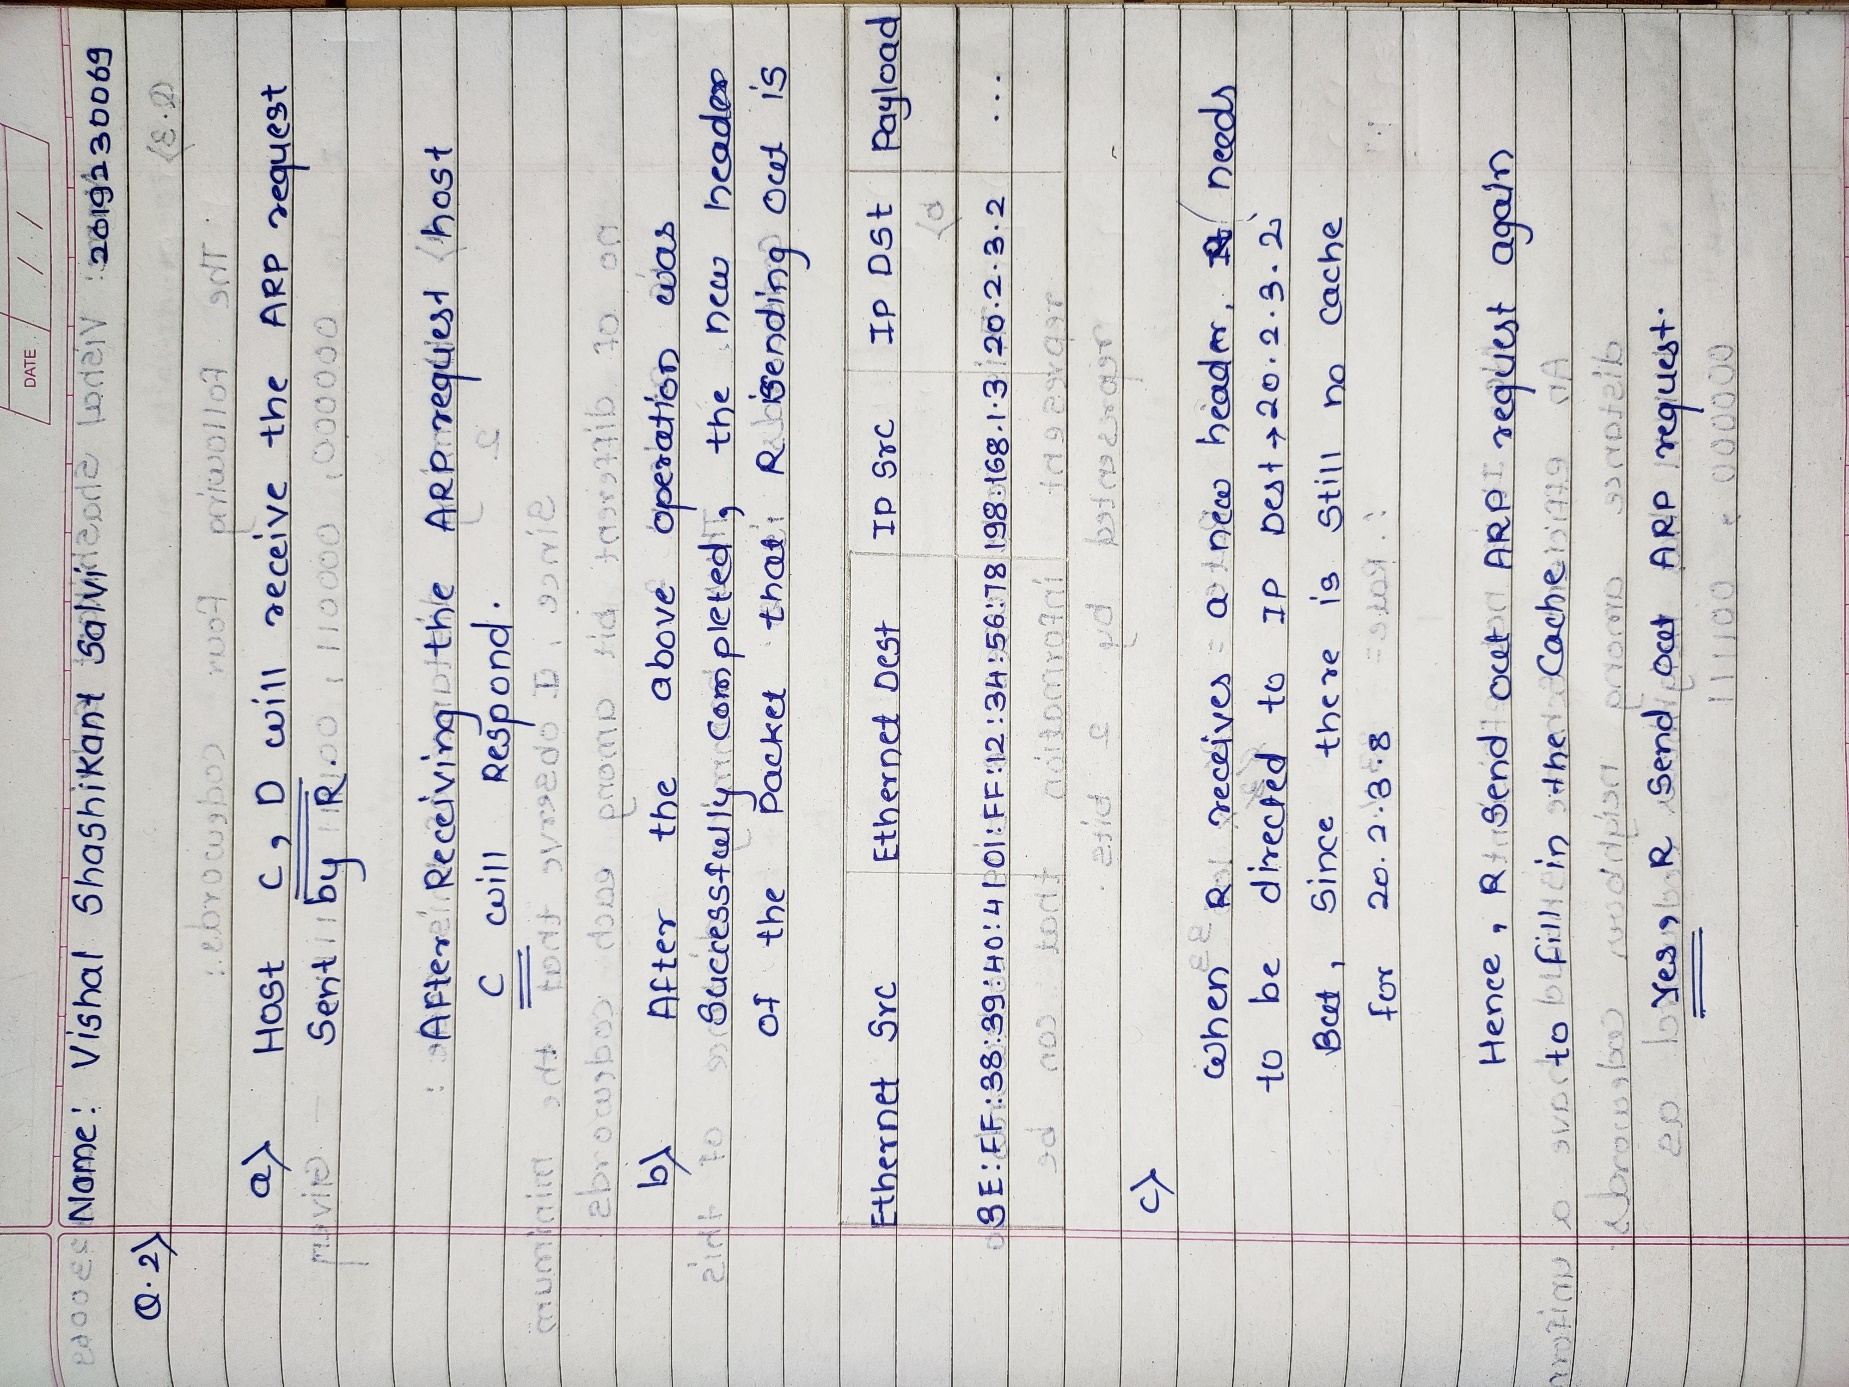 DATE
Name: Vishal Shashikant Salvi : 2619230069
Q.2)
a) Host C, D will receive the ARP request
Sent by R
After Receiving the ARP request host
C will Respond.
b) After the above operation was
Successfully Completed, the new header
of the Packet that R is Sending out is
Ethernet Src Ethernet Dest IP Src IP Dst Payload
3E:FF:38:39:40:41 01:FF:12:34:56:78 198.168.1.3 20.2.3.2 ...
c)
When R receives a new header, needs
to be directed to IP Dest → 20.2.3.2
But, Since there is Still no cache
for 20.2.3.8
Hence, R Send out ARP request again
to fill in the Cache
Yes, R Send out ARP request.